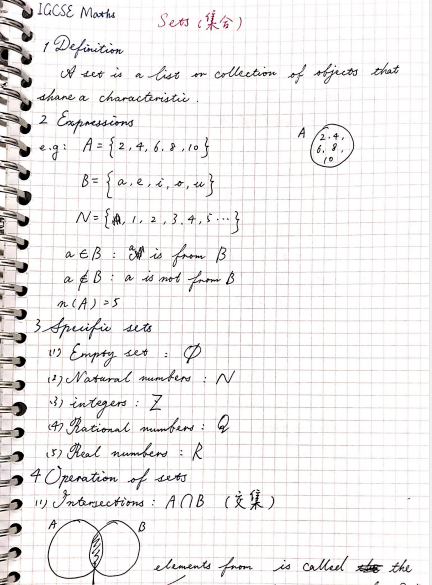 IGCSE Maths
Sets (集合)
1 Definition
A set is a list or collection of objects that
share a characteristic.
2 Expressions
e.g: A = {2, 4, 6, 8, 10}
A
2. 4,
6, 8,
10
B = {a, e, i, o, u}
N = { 1, 2, 3, 4, 5 ...}
a ∈ B : is from B
a ∉ B : a is not from B
n(A) = 5
3 Specific sets
(1) Empty set : ∅
(2) Natural numbers : N
(3) integers : Z
(4) Rational numbers : Q
(5) Real numbers : R
4 Operation of sets
(1) Intersections : A∩B (交集)
A B
elements from is called the